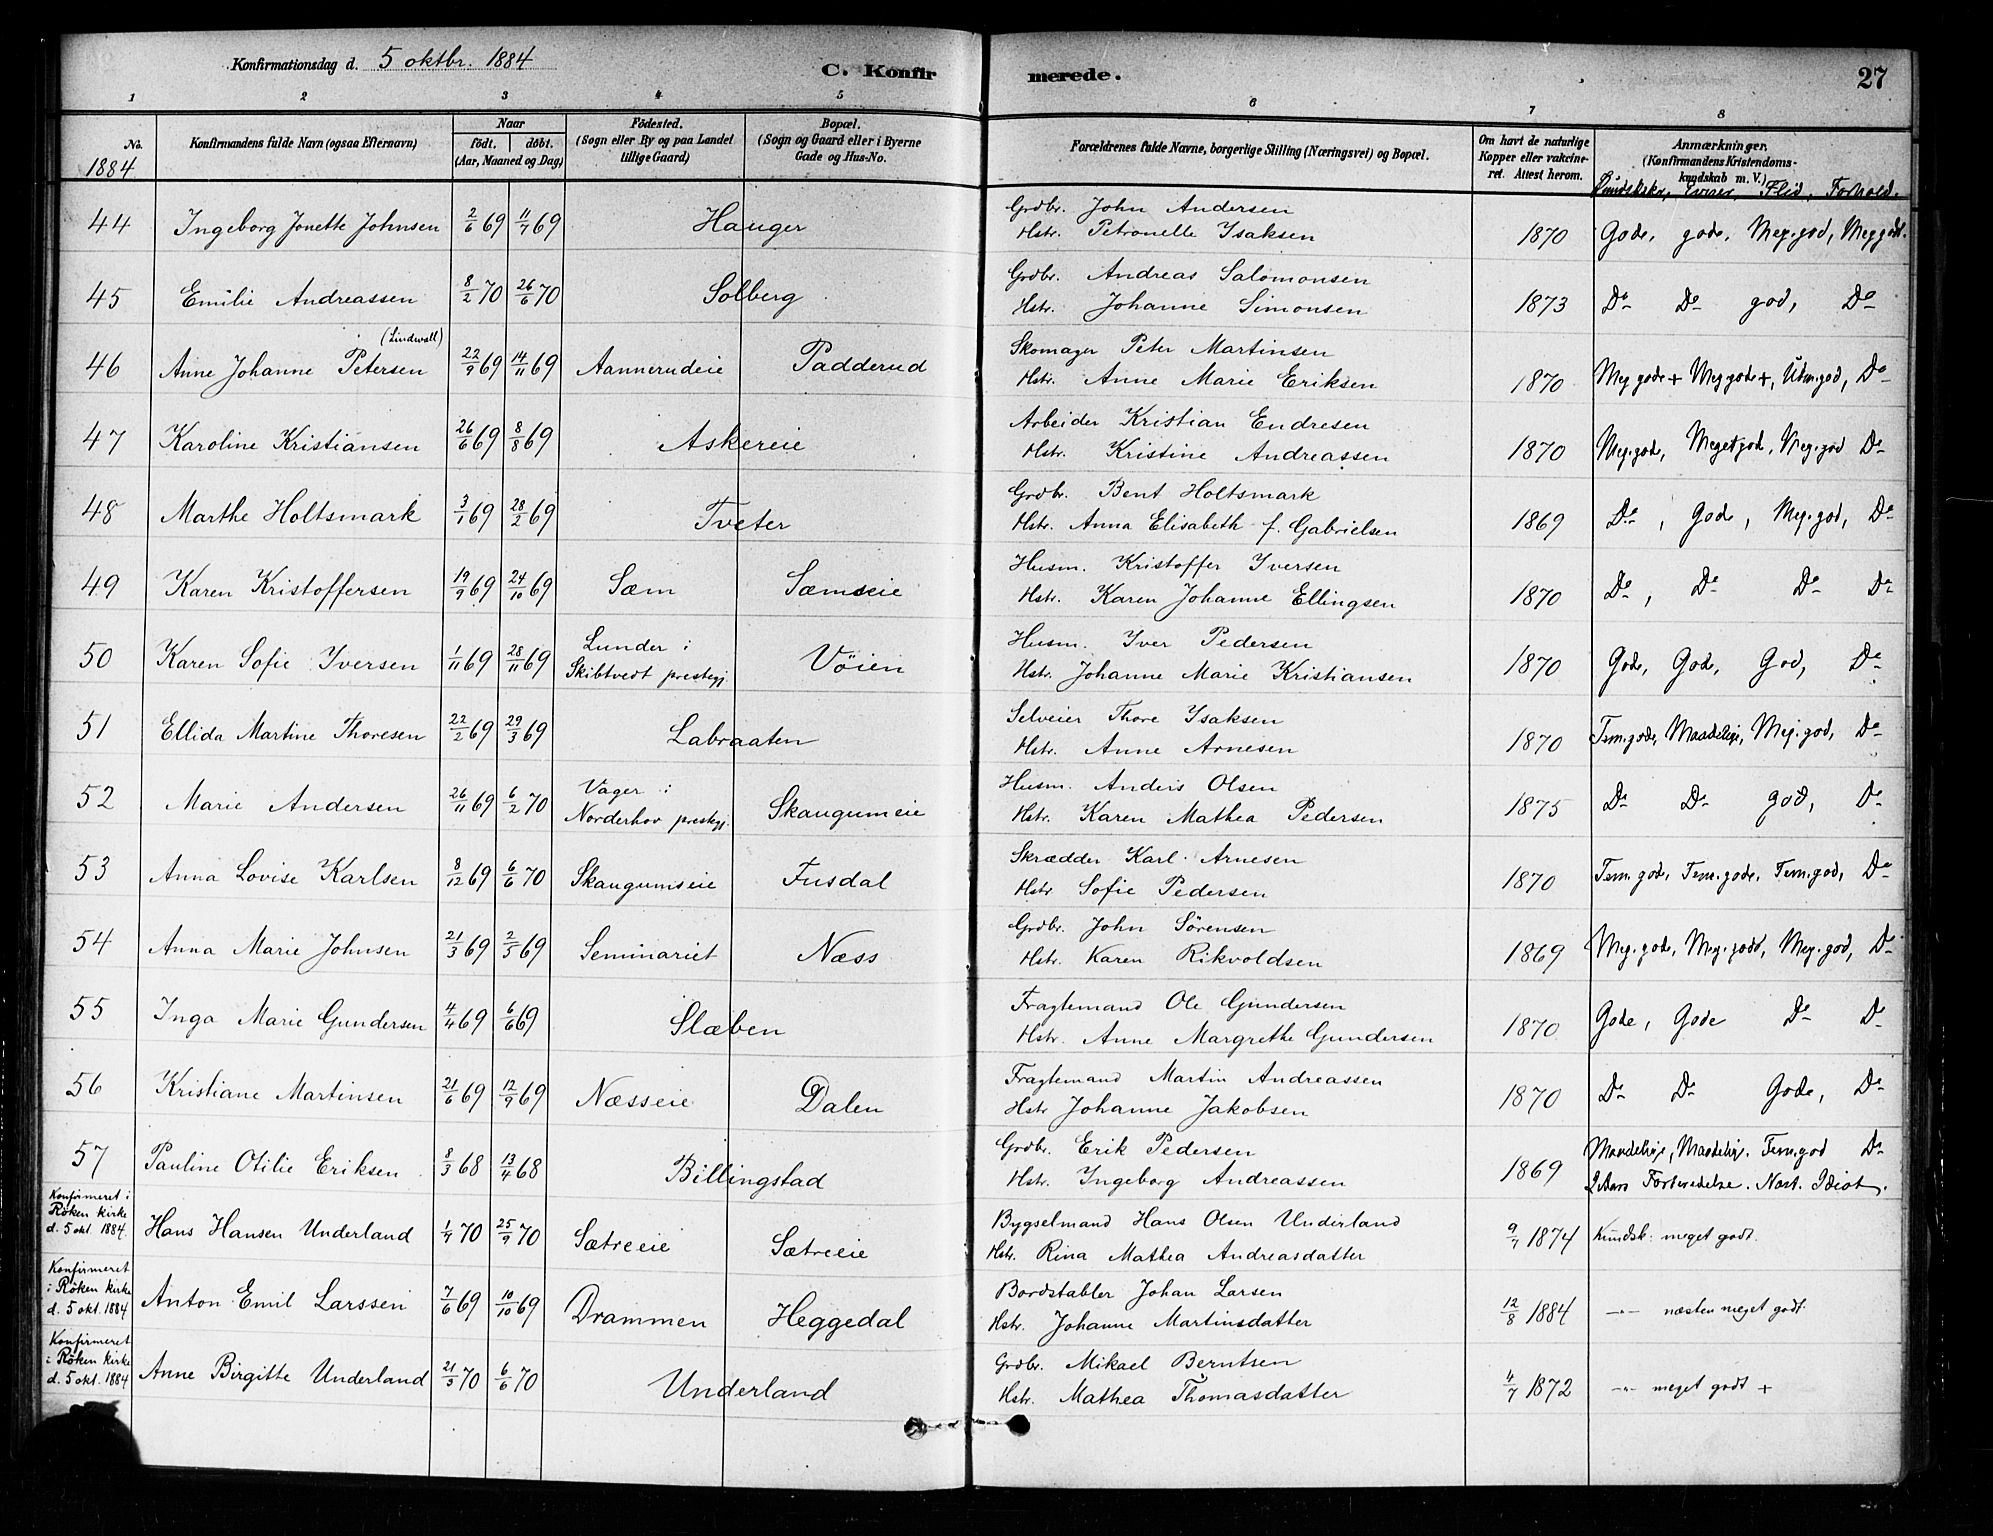 Konfirmationsdag d. 5 oktbr. 1884
C. Konfirmerede.
27
1 2 3 4 5 6 7 8
No. 1884
Konfirmandens fulde Navn (ogsaa Efternavn)
Naar
født. døbt.
(Aar, Maaned og Dag)
Fødested.
(Sogn eller By og paa Landet tillige Gaard)
Bopæl.
(Sogn og Gaard eller i Byerne Gade og Hus-No.
Forældrenes fulde Navne, borgerlige Stilling (Næringsvei) og Bopæl.
Om havt de naturlige Kopper eller vakcineret. Attest herom.
Anmærkninger.
(Konfirmandens Kristendomskundskab m. V.)
Flid, Forhold.
44 Ingeborg Jonette Johnsen 2/6 69 11/7 69 Hauger
Grdbr. John Andersen
Hstr. Petronelle Ysaksen 1870 Gode, gode, Meg.god, Meg godt.
45 Emilie Andreassen 8/2 70 26/6 70 Solberg
Grdbr. Andreas Salomonsen
Hstr. Johanne Simonsen 1873 Do Do god, Do
46 Anne Johanne Petersen (Lindwall) 22/9 69 14/11 69 Aannerudeie Padderud
Skomager Peter Martinsen
Hstr. Anne Marie Eriksen 1870 Meg gode+ Meg gode+, Udm.god, Do
47 Karoline Kristiansen 26/6 69 8/8 69 Askereie
Arbeider Kristian Endresen
Hstr. Kristine Andreassen 1870 Meg.gode, Meget gode, Meg.god Do
48 Marthe Holtsmark 3/1 69 28/2 69 Tveter
Grdbr. Bent Holtsmark
Hstr. Anna Elisabeth f. Gabrielsen 1869 Do, Gode, Meg.god, Do
49 Karen Kristoffersen 19/9 69 24/10 69 Sæm Sæmseie
Husm. Kristoffer Yversen
Hstr. Karen Johanne Ellingsen 1870 Do, Do Do Do
50 Karen Sofie Yversen 1/11 69 28/11 69 Lunder i Skibtvedt prestegj. Vöien
Husm. Yver Pedersen
Hstr. Johanne Marie Kristiansen 1870 Gode, Gode, God, Do
51 Ellida Martine Thoresen 22/2 69 29/3 69 Labraaten
Selveier Thore Ysaksen
Hstr. Anne Arnesen 1870 Tem.gode, Maadelige, Meg.god, Do
52 Marie Andersen 26/11 69 6/2 70 Vager i Norderhov prestegj. Skaugumeie
Husm. Anders Olsen
Hstr. Karen Mathea Pedersen 1875 Do Do god, Do
53 Anna Lovise Karlsen 8/12 69 6/6 70 Skaugumseie Fusdal
Skrædder Karl Arnesen
Hstr Sofie Pedersen 1870 Tem.gode, Tem.gode, Tem.god, Do
54 Anna Marie Johnsen 21/3 69 2/5 69 Seminariet Næss
Grdbr. John Sörensen
Hstr. Karen Rikvoldsen 1869 Meg.gode, Meg.gode, Meg.god, Do
55 Inga Marie Gundersen 4/4 69 6/6 69 Slæben
Fragtemand Ole Gundersen
Hstr. Anne Margrethe Gundersen 1870 Gode, Gode Do Do
56 Kristiane Martinsen 21/6 69 12/9 69 Næsseie Dalen
Fragtemand Martin Andreassen
Hstr Johanne Jakobsen 1870 Do Do Gode, Do
57 Pauline Otilie Eriksen 8/3 68 13/4 68 Billingstad
Grdbr. Erik Pedersen
Hstr. Ingeborg Andreassen 1869 Maadelige, Maadelige. Tem.god Do
2 Aars Forberedelse. Næst. Idiot.
Konfirmeret i Röken kirke d. 5 okt. 1884. Hans Hansen Underland 1/7 70 25/9 70 Sætreeie Sætreeie
Bygselmand Hans Olsen Underland
Hstr. Rina Mathea Andreasdatter 9/7 1874 Kundsk: meget godt.
Konfirmeret i Röken kirke d. 5 okt. 1884 Anton Emil Larssen 7/6 69 10/10 69 Drammen Heggedal
Bordstabler Johan Larsen
Hstr. Johanne Martinsdatter 12/8 1884 —"— næsten meget godt.
Konfirmeret i Röken kirke d. 5 okt. 1884 Anne Birgitte Underland 21/3 70 6/6 70 Underland
Grdbr. Mikael Berntsen
Hstr. Mathea Thomasdatter 4/7 1872 —"— meget godt +